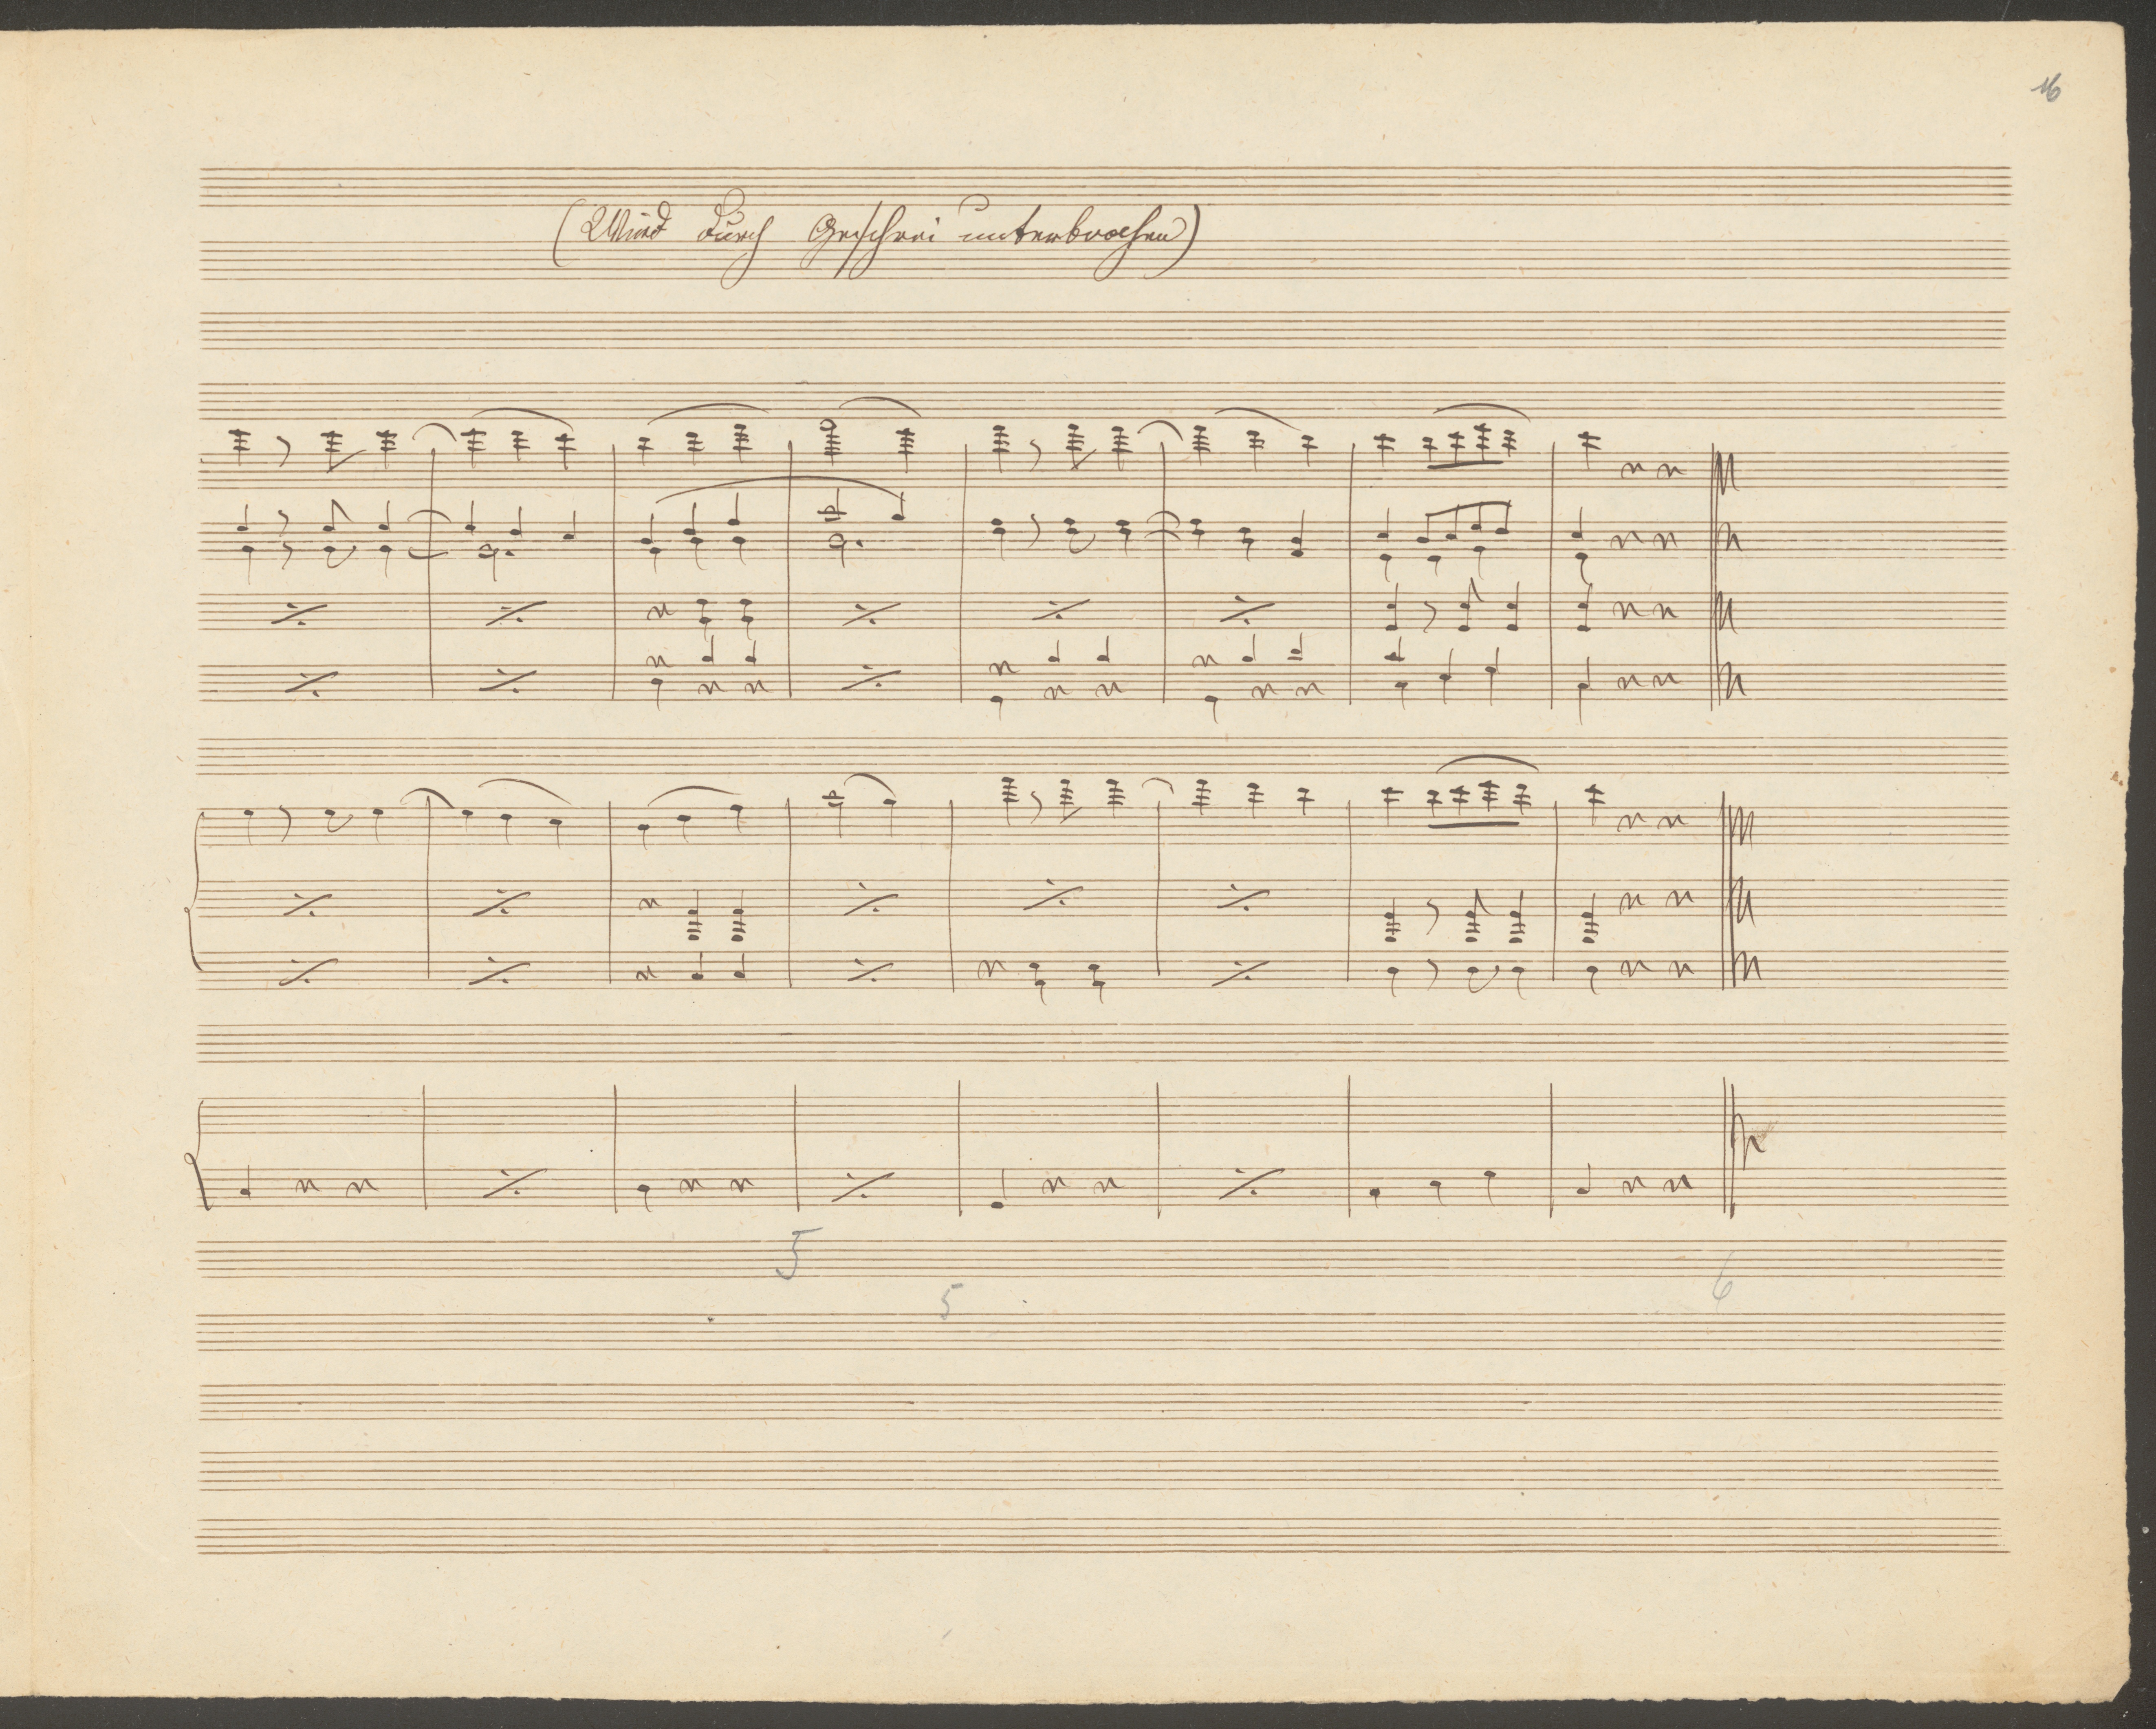 16
(Wird durch Geschrei unterbrochen)
5
5
6